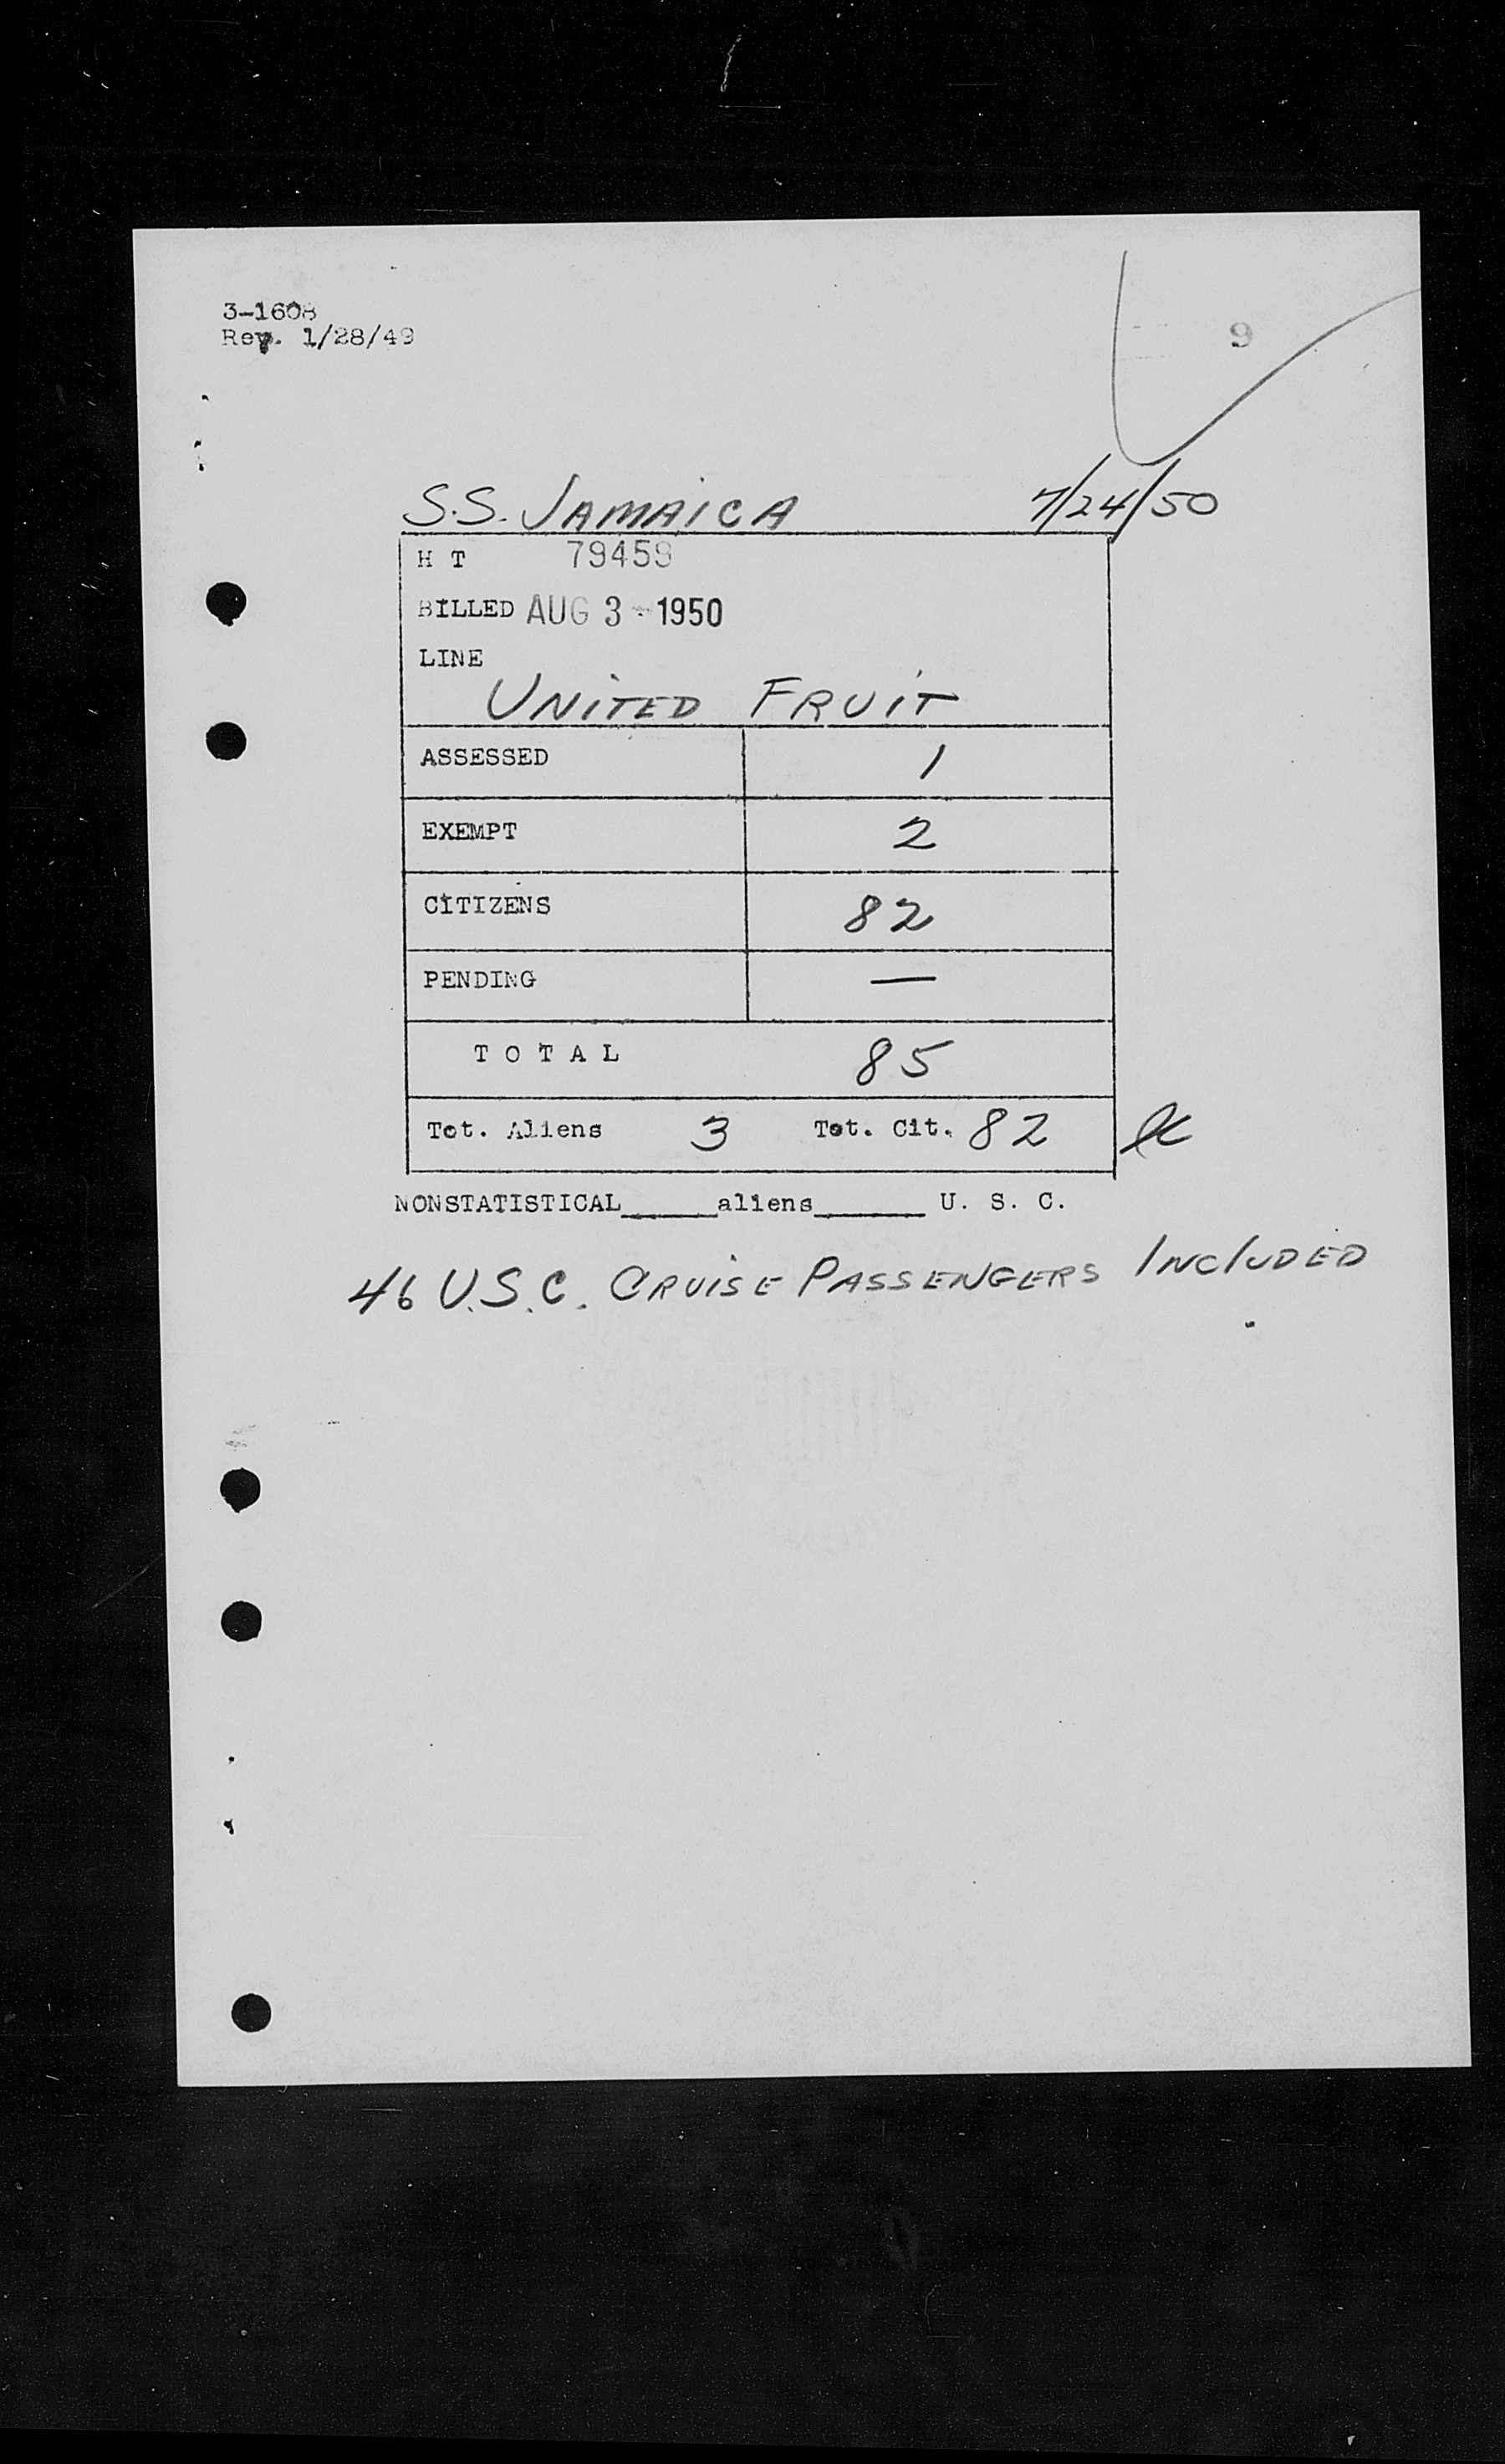 3-1608
Rev. 1/28/49
9
S.S. JAMAICA 7/24/50
H T 79459
BILLED AUG 3 - 1950
LINE
UNITED FRUIT
ASSESSED 1
EXEMPT 2
CITIZENS 82
PENDING —
T O T A L 85
Tot. Aliens 3 Tot. Cit. 82
NONSTATISTICAL_____aliens______ U. S. C.
46 U.S.C. CRUISE PASSENGERS INCLUDED